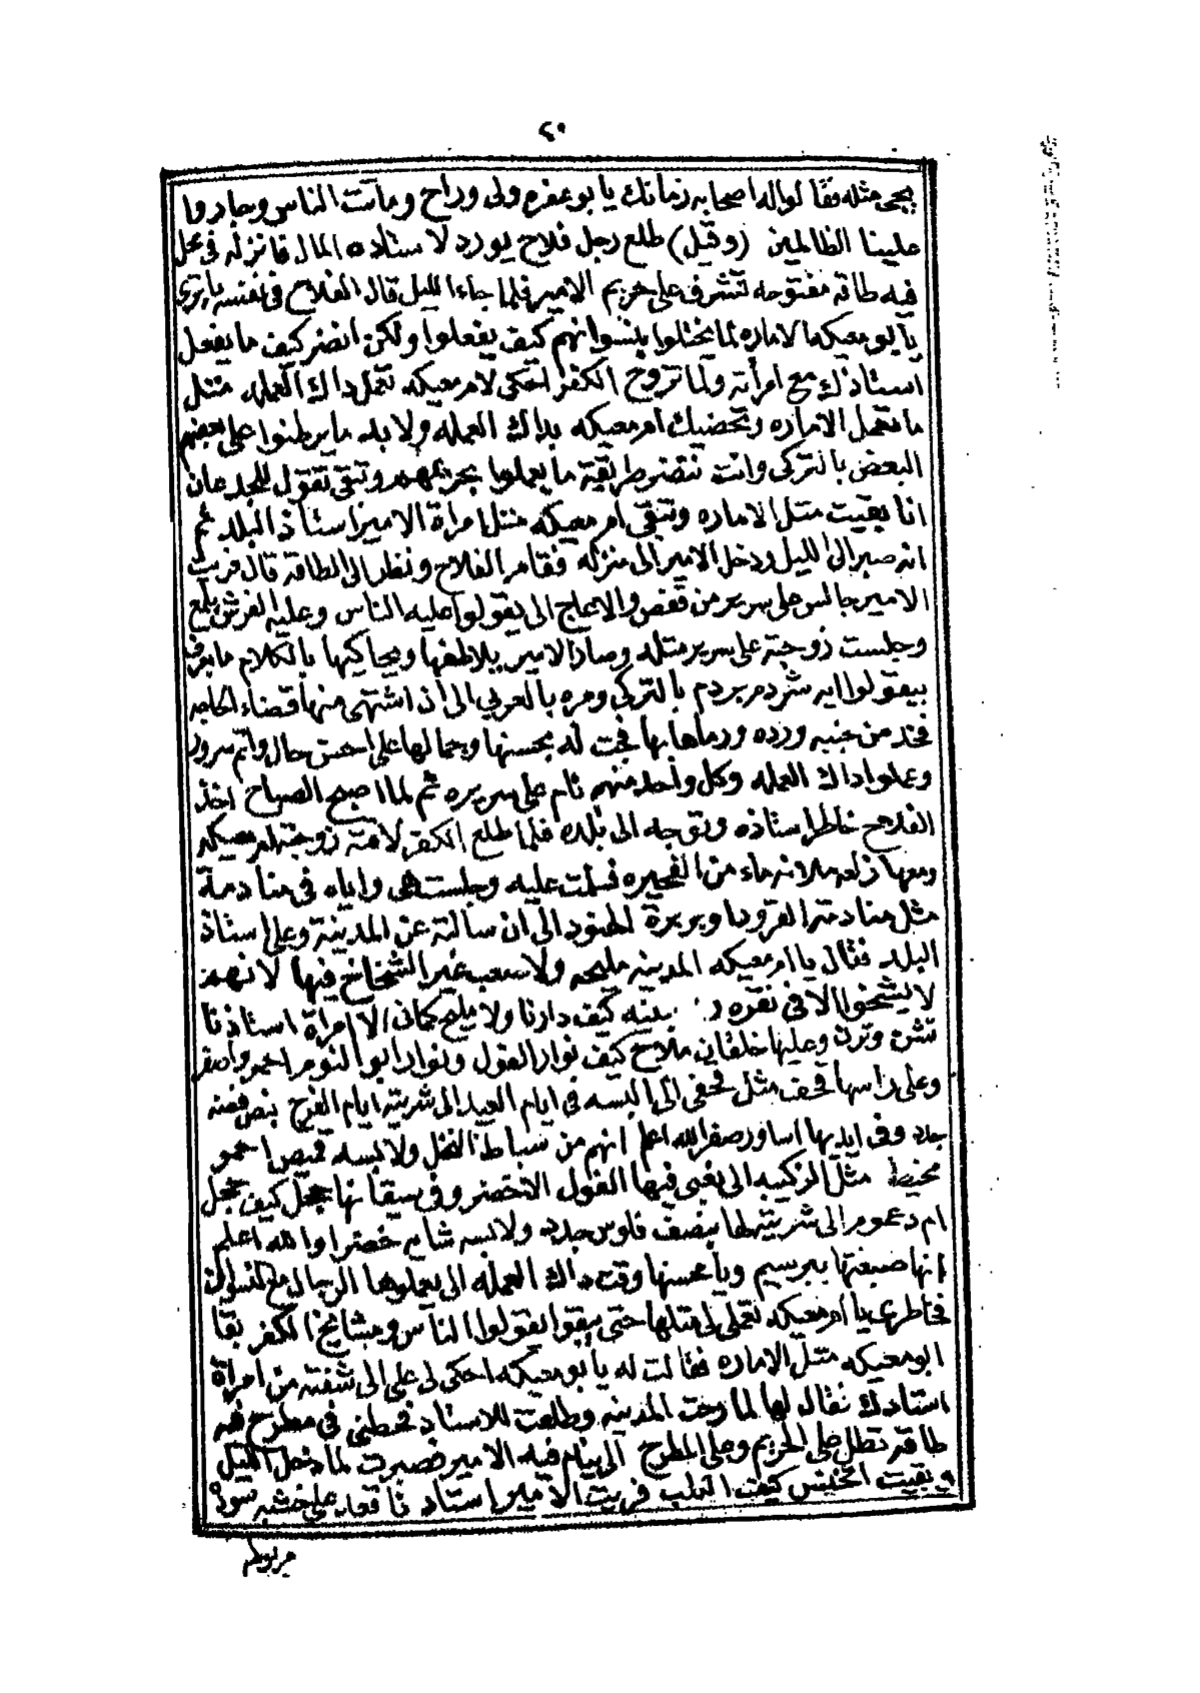 ٢٠
يجى مثله فقالوا له اصحابه زمانك يابو عفره ولى وراح وماتت الناس وجاروا
علينا الظالمين (وقيل) طلع رجل فلاح يورد لاستاده المال فانزله فى محل
فيه طاقه مفتوحه تشرف على حريم الامير فلما جاء الليل قال الفلاح فى نفسه ياترى
يابو معيكه الاماره لما يختلوا بنسوانهم كيف يفعلوا ولكن انضر كيف ما يفعل
استاذك مع امرأته ولما تروح الكفر احكى لام معيكه تعمل داك العمله مثل
ما تعمل الاماره وتحضيك ام معيكه بداك العمله ولابد ما يرطنوا على بعضهم
البعض بالتركى وانت تنضر طريقة ما يعملوا بحريمهم وتبقى تقول للجدعان
انا بقيت مثل الاماره وتبقى ام معيكه مثل امراة الامير استاذ البلد ثم
انه صبر الى الليل ودخل الامير الى منزله فقام الفلاح ونظر الى الطاقه قال فريت
الامير جالس على سرير من قفص والاعاج الى يقولوا عليه الناس وعليه الفرش
وجلست زوجته على سرير مثله وصار الامير يلاطفها ويحاكيها بالكلام ما بعرف
بيقولوا ايه شردم بردم بالتركى ومره بالعربي الى اذ اشتهى منها قضاء الحاجه
فخد من جنبه ورده ورماها بها فجت له بحسنها وجمالها على احسن حال واتم سرور
وعملوا داك العمله وكل واحد منهم نام على سريره ثم لما اصبح الصباح اخذ
الفلاح خاطر استاذه وتوجه الى بلده فلما طلع الكفر لاقته زوجته ام معيكه
ومعها زلعه ملانه ماء من الفجيره فسلمت عليه وجلست هى واياه فى منادمة
مثل منادمة القرود او بربرة الهنود الى ان سالته عن المدينة وعلى استاذ
البلد فقال يا ام معيكه المدينه مليحه ولا صعب غير الشخاخ فيها لانهم
لا يشخوا الا فى نقره مبنيه كيف دارنا ولا مليح كمانى الا امراة استاذنا
تشن وترن وعليها خلقاين ملاح كيف نوار الفول ونوار ابو النوم احمر واصفر
وعلى راسها قحف مثل قحفى الى البسه فى ايام العيد الى شريته ايام الفرح بنص فضه
جدد وفى ايديها اساور صفر الله اعلم انهم من سباط النخل ولابسه قميص احمر
مخيط مثل الزكيبه الى يغبى فيها الفول الاخضر وفى سيقانها حجل كيف حجل
ام دعموم الى شريتهلها بنصف فلوس جدد ولابسه شايه خضرا والله اعلم
انها صبغتها ببرسيم ويا محسنها وقت داك العمله الى يعملوها الرجال مع النسوان
فخاطرى يا ام معيكه تعملى لى مثلها حتى يبقوا يقولوا الناس ومشايخ الكفر بقا
ابو معيكه مثل الاماره فقالت له يابو معيكه احكى لى على الى شفته من امراة
استادك فقال لها لما رحت المدينه وطلعت للاستاد فحطنى فى مطرح فيه
طاقه تطل على الحريم وعلى المطرح الى ينام فيه الامير فصبرت لما دخل الليل
وبقيت اتخنس كيف الكلب فريت الامير استاد نا قعد على خشبه سوده
مربوطه